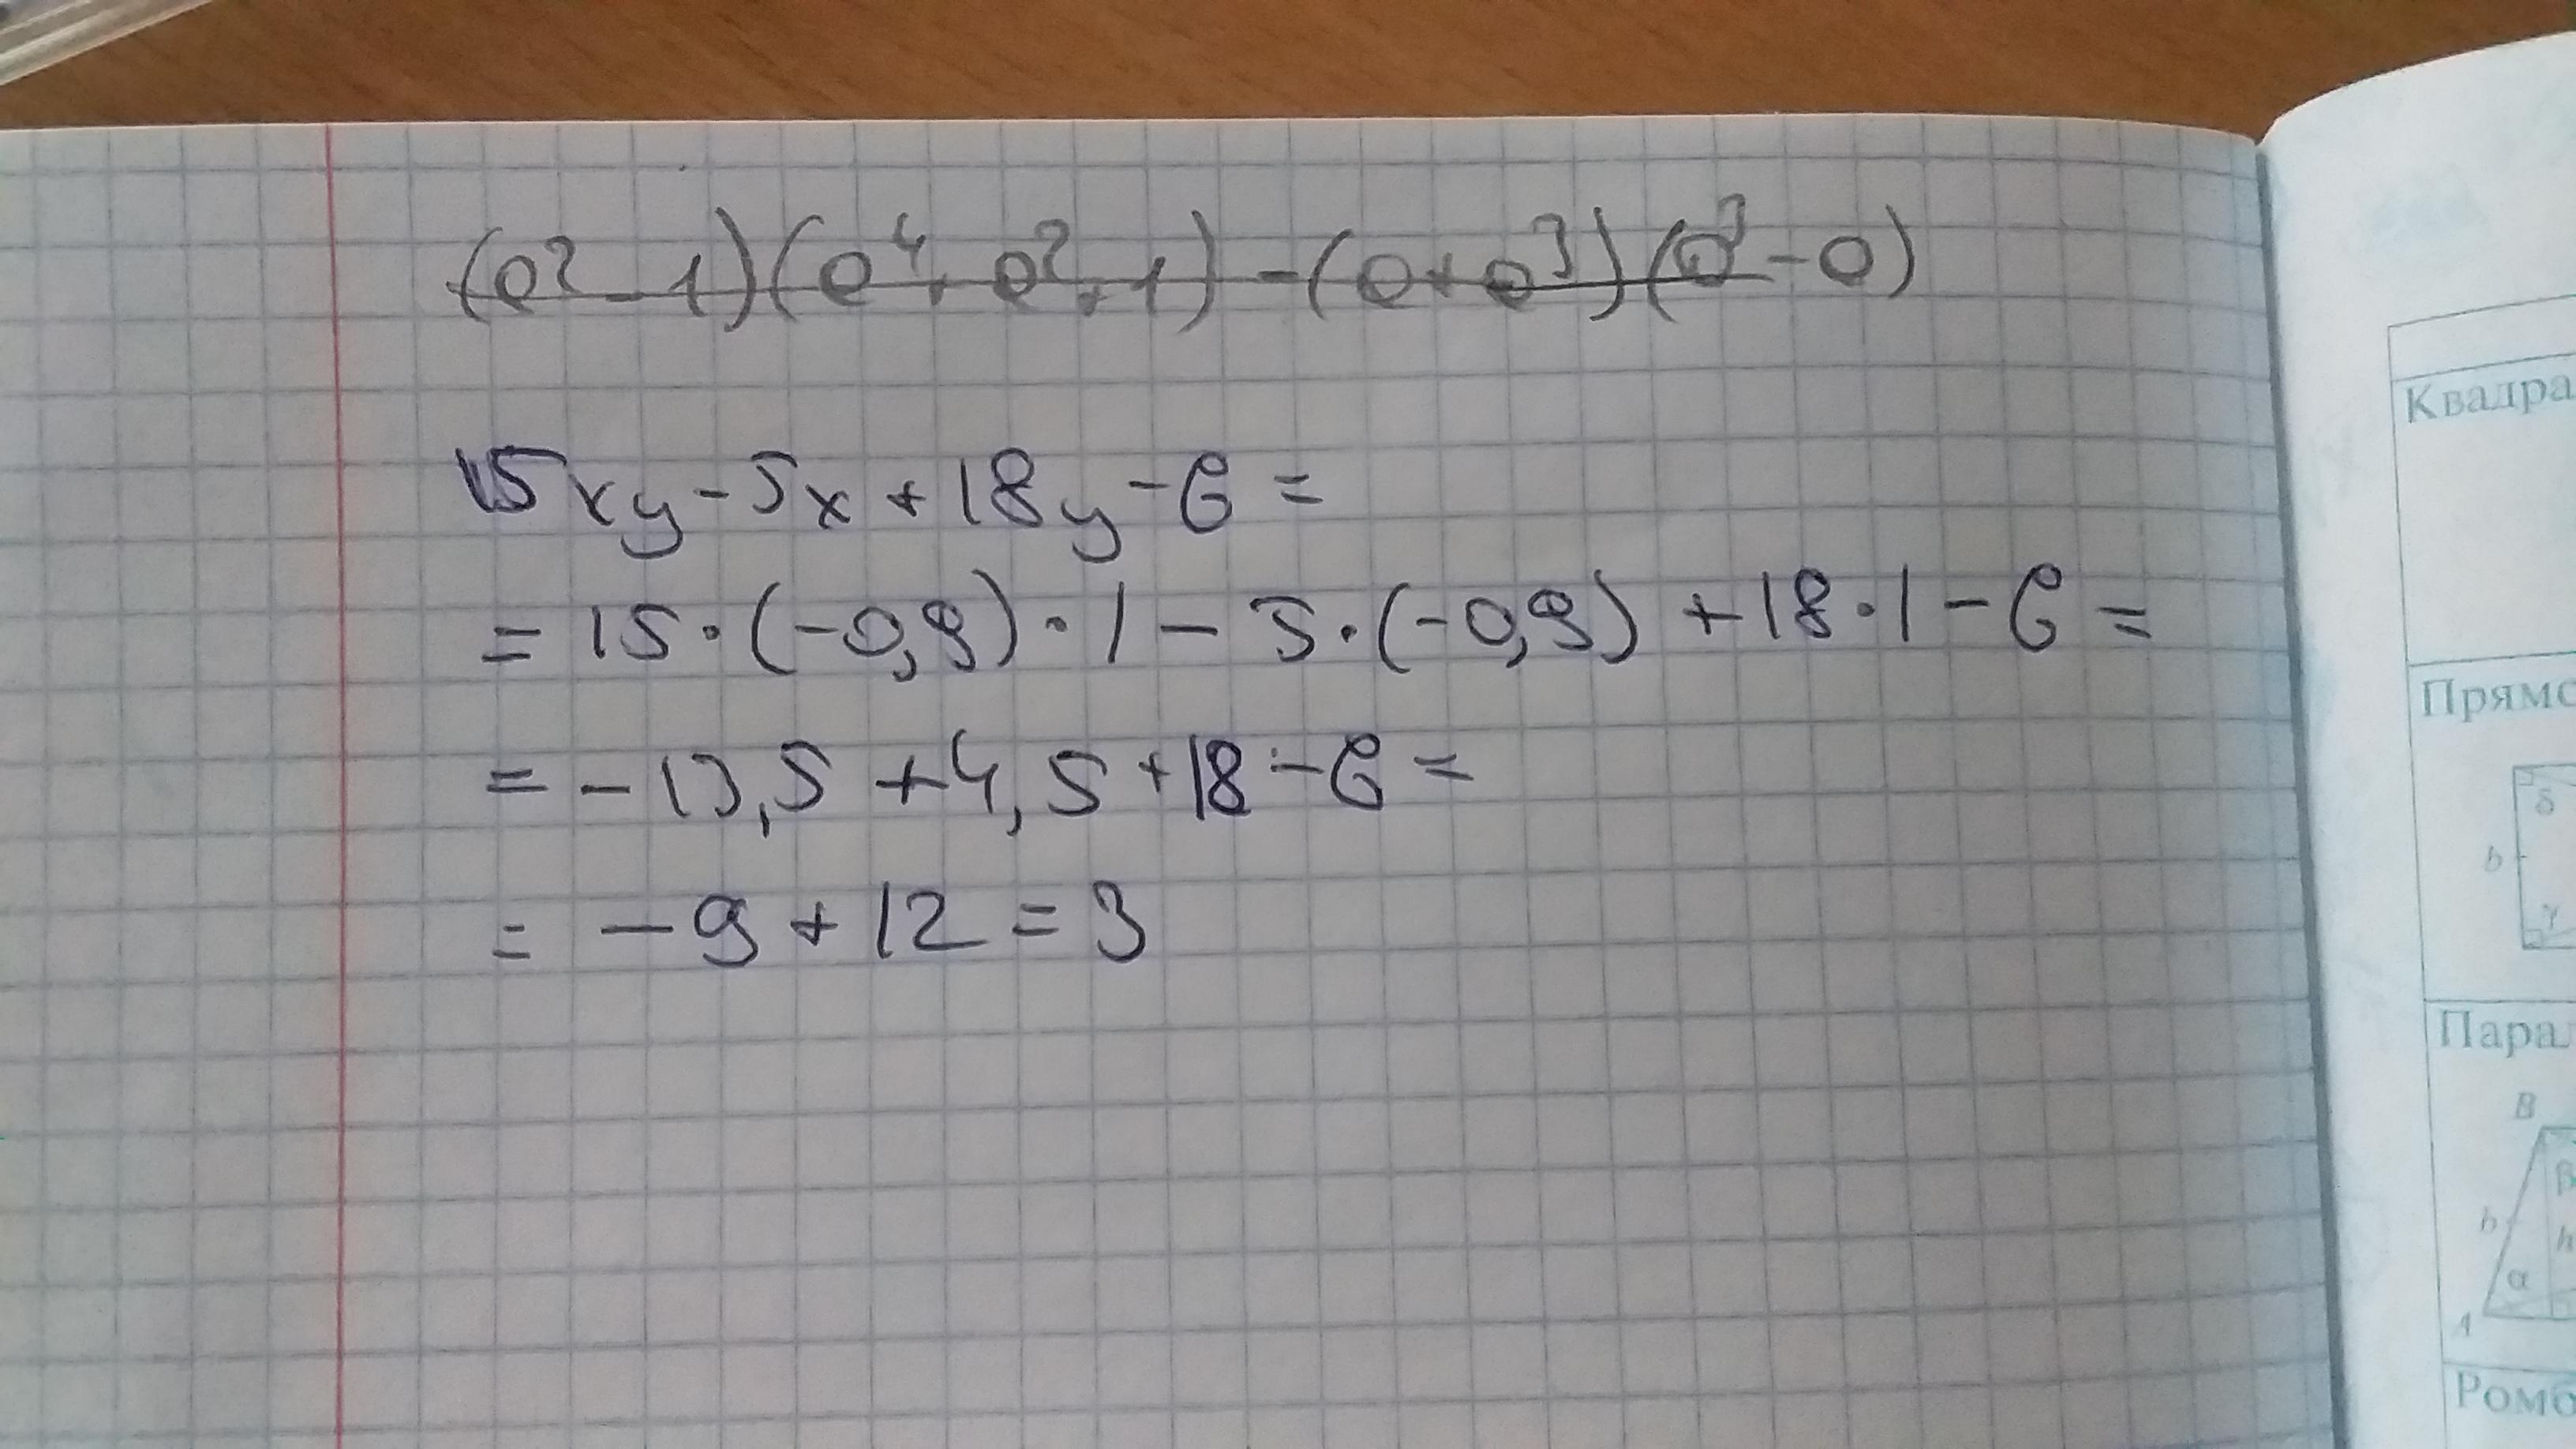 (a² - 1)(a⁴ + a² + 1) - (a + a³)(a³ - a)
15xy - 5x + 18y - 6 =
= 15 · (-0,9) · 1 - 5 · (-0,9) + 18 · 1 - 6 =
= -13,5 + 4,5 + 18 - 6 =
= -9 + 12 = 3
Квадра
Прямо
δ
b
γ
Парал
B
β
b
h
α
A
Ромб